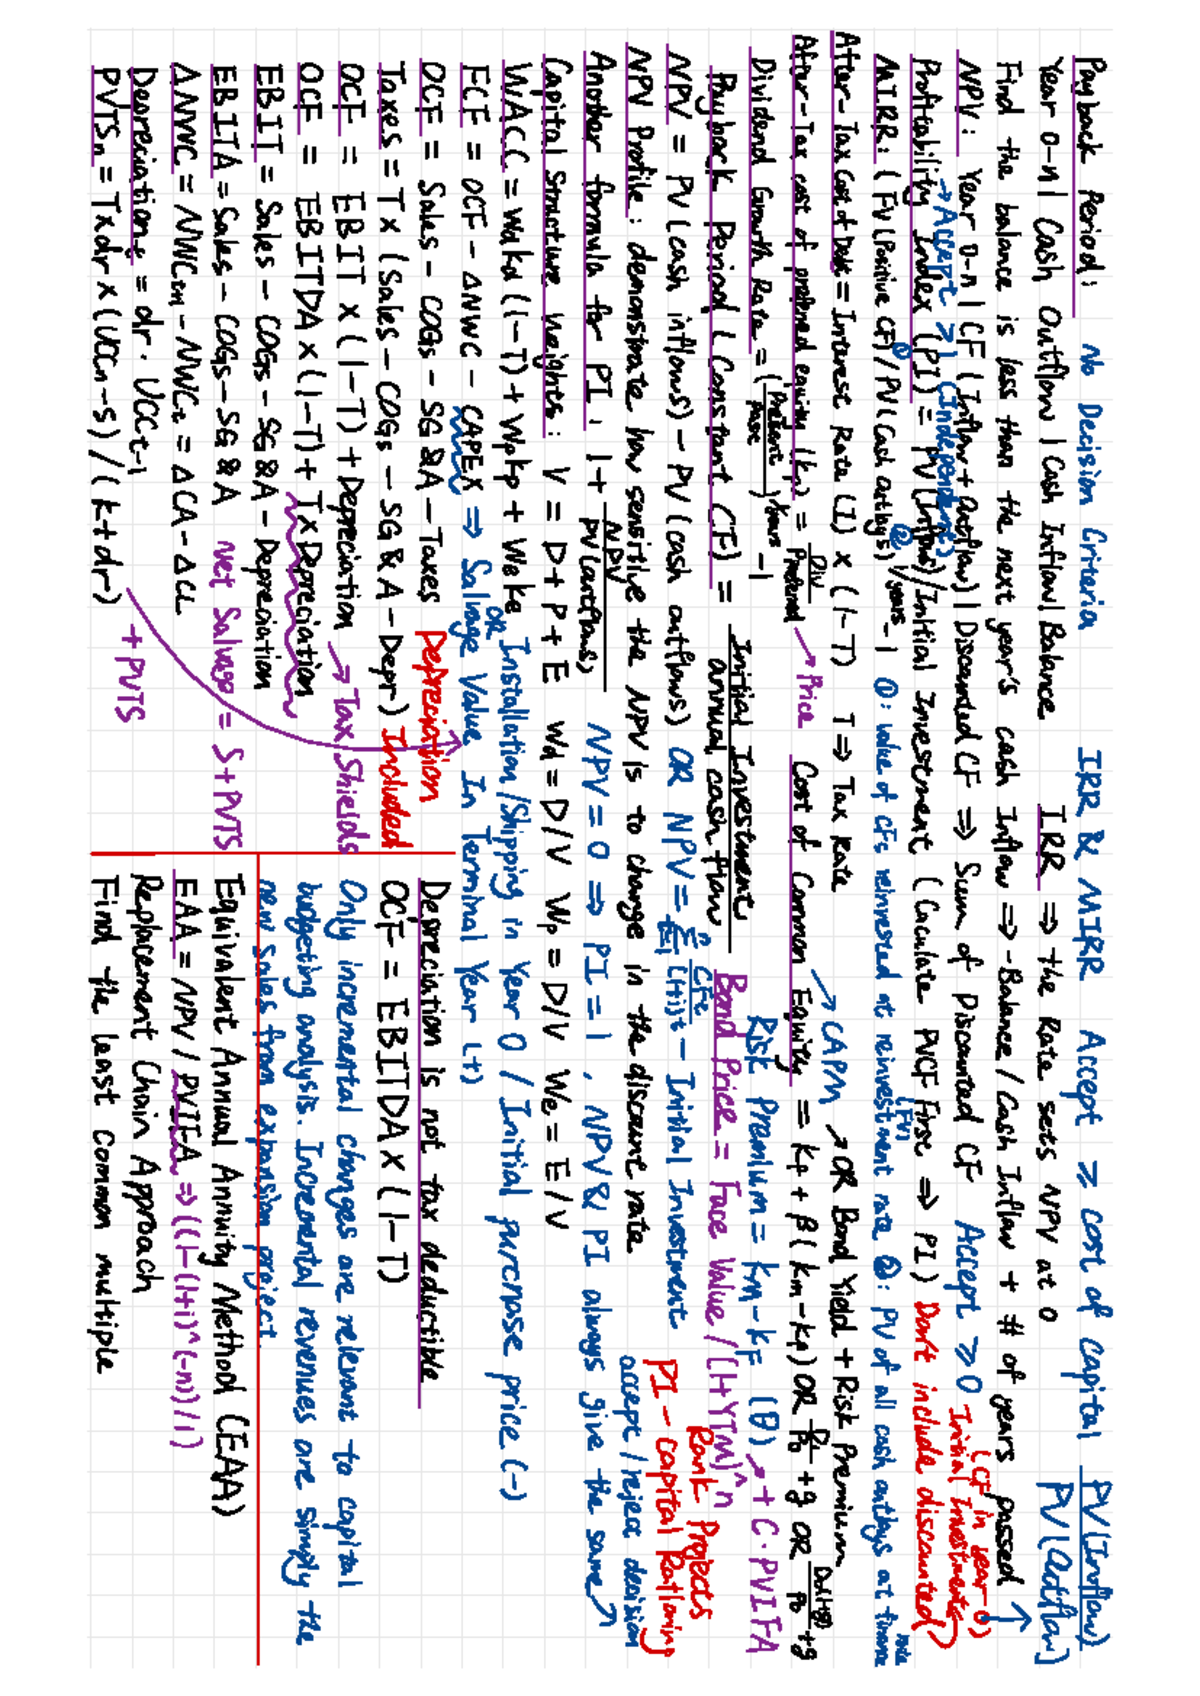 Payback Period: No Decision Criteria IRR & MIRR Accept ≥ cost of capital PV(Inflow)/PV(Outflow)
Year 0-n | Cash Outflow | Cash Inflow | Balance IRR ⇒ the Rate sets NPV at 0
Find the balance is less than the next year's cash Inflow ⇒ -Balance / Cash Inflow + # of years passed ↑
NPV: Year 0-n | CF (Inflow + Outflow) | Discounted CF ⇒ Sum of Discounted CF Accept ≥ 0
→ Accept >1 (Independent)
(CF in year 0)
Initial Investments
Profitability Index (PI) = PV(Inflow)/Initial Investment (Calculate PVCF First ⇒ PI) Don't include discounted
MIRR: (FV(Positive CF)① / PV(Cash outlays)②)^1/years - 1 ①: value of CFs reinvested at reinvestment rate (FV) ②: PV of all cash outlays at finance rate
After-Tax Cost of Debt = Interest Rate (I) x (1-T) T ⇒ Tax Rate
→ CAPM → OR Bond Yield + Risk Premium
After-Tax cost of preferred equity (kp) = Div/Preferred → Price Cost of Common Equity = kf + β(km-kf) OR D1/P0 + g OR D0(1+g)/P0 + g
Dividend Growth Rate = (Present/Past)^1/years - 1 Risk Premium = km-kF (θ)
Payback Period (Constant CF) = Initial Investment/annual cash flow Bond Price = Face Value/(1+YTM)^n + C·PVIFA
NPV = PV(cash inflows) - PV(cash outflows) OR NPV = Σ CFt/(1+i)t - Initial Investment
Rank Projects
PI - capital Rationing
NPV Profile: demonstrate how sensitive the NPV is to change in the discount rate
Another formula for PI: 1 + NPV/PV(outflows) NPV = 0 ⇒ PI = 1, NPV & PI always give the same accept/reject decision
Capital Structure weights: V = D + P + E Wd = D/V Wp = D/V We = E/V
WACC = Wdkd(1-T) + Wpkp + Weke
OR Installation/Shipping in Year 0 / Initial purchase price (-)
FCF = OCF - ΔNWC - CAPEX ⇒ Salvage Value In Terminal Year (+)
OCF = Sales - COGs - SG&A - Taxes Depreciation Included
Taxes = T x (Sales - COGs - SG&A - Depr)
OCF = EBIT x (1-T) + Depreciation → Tax Shields
OCF = EBITDA x (1-T) + TxDepreciation
EBIT = Sales - COGs - SG&A - Depreciation
EBITA = Sales - COGs - SG&A Net Salvage = S + PVTS
ΔNWC = NWCt+1 - NWCt = ΔCA - ΔCL
Depreciationt = dr · UCCt-1
PVTSn = Txdr x (UCCn-S)/(k+dr) + PVTS
Depreciation is not tax deductible
OCF = EBITDA x (1-T)
Only incremental changes are relevant to capital
budgeting analysis. Incremental revenues are simply the
new sales from expansion project.
Equivalent Annual Annuity Method (EAA)
EAA = NPV / PVIFA ⇒ ((1-(1+i)^(-n))/i)
Replacement Chain Approach
Find the least common multiple